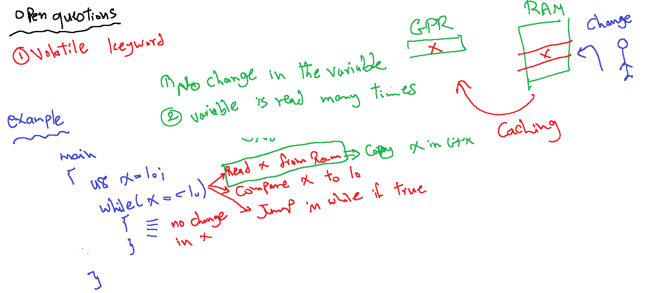 Open questions
① Volatile keyword
GPR
RAM
Change
x
x
① No change in the variable
② variable is read many times
Caching
example
main
{ u8 x=10;
while( x = <10)
Read x from Ram → Copy x in GPR
Compare x to 10
Jump in while if true
{
no change
in x
}
}